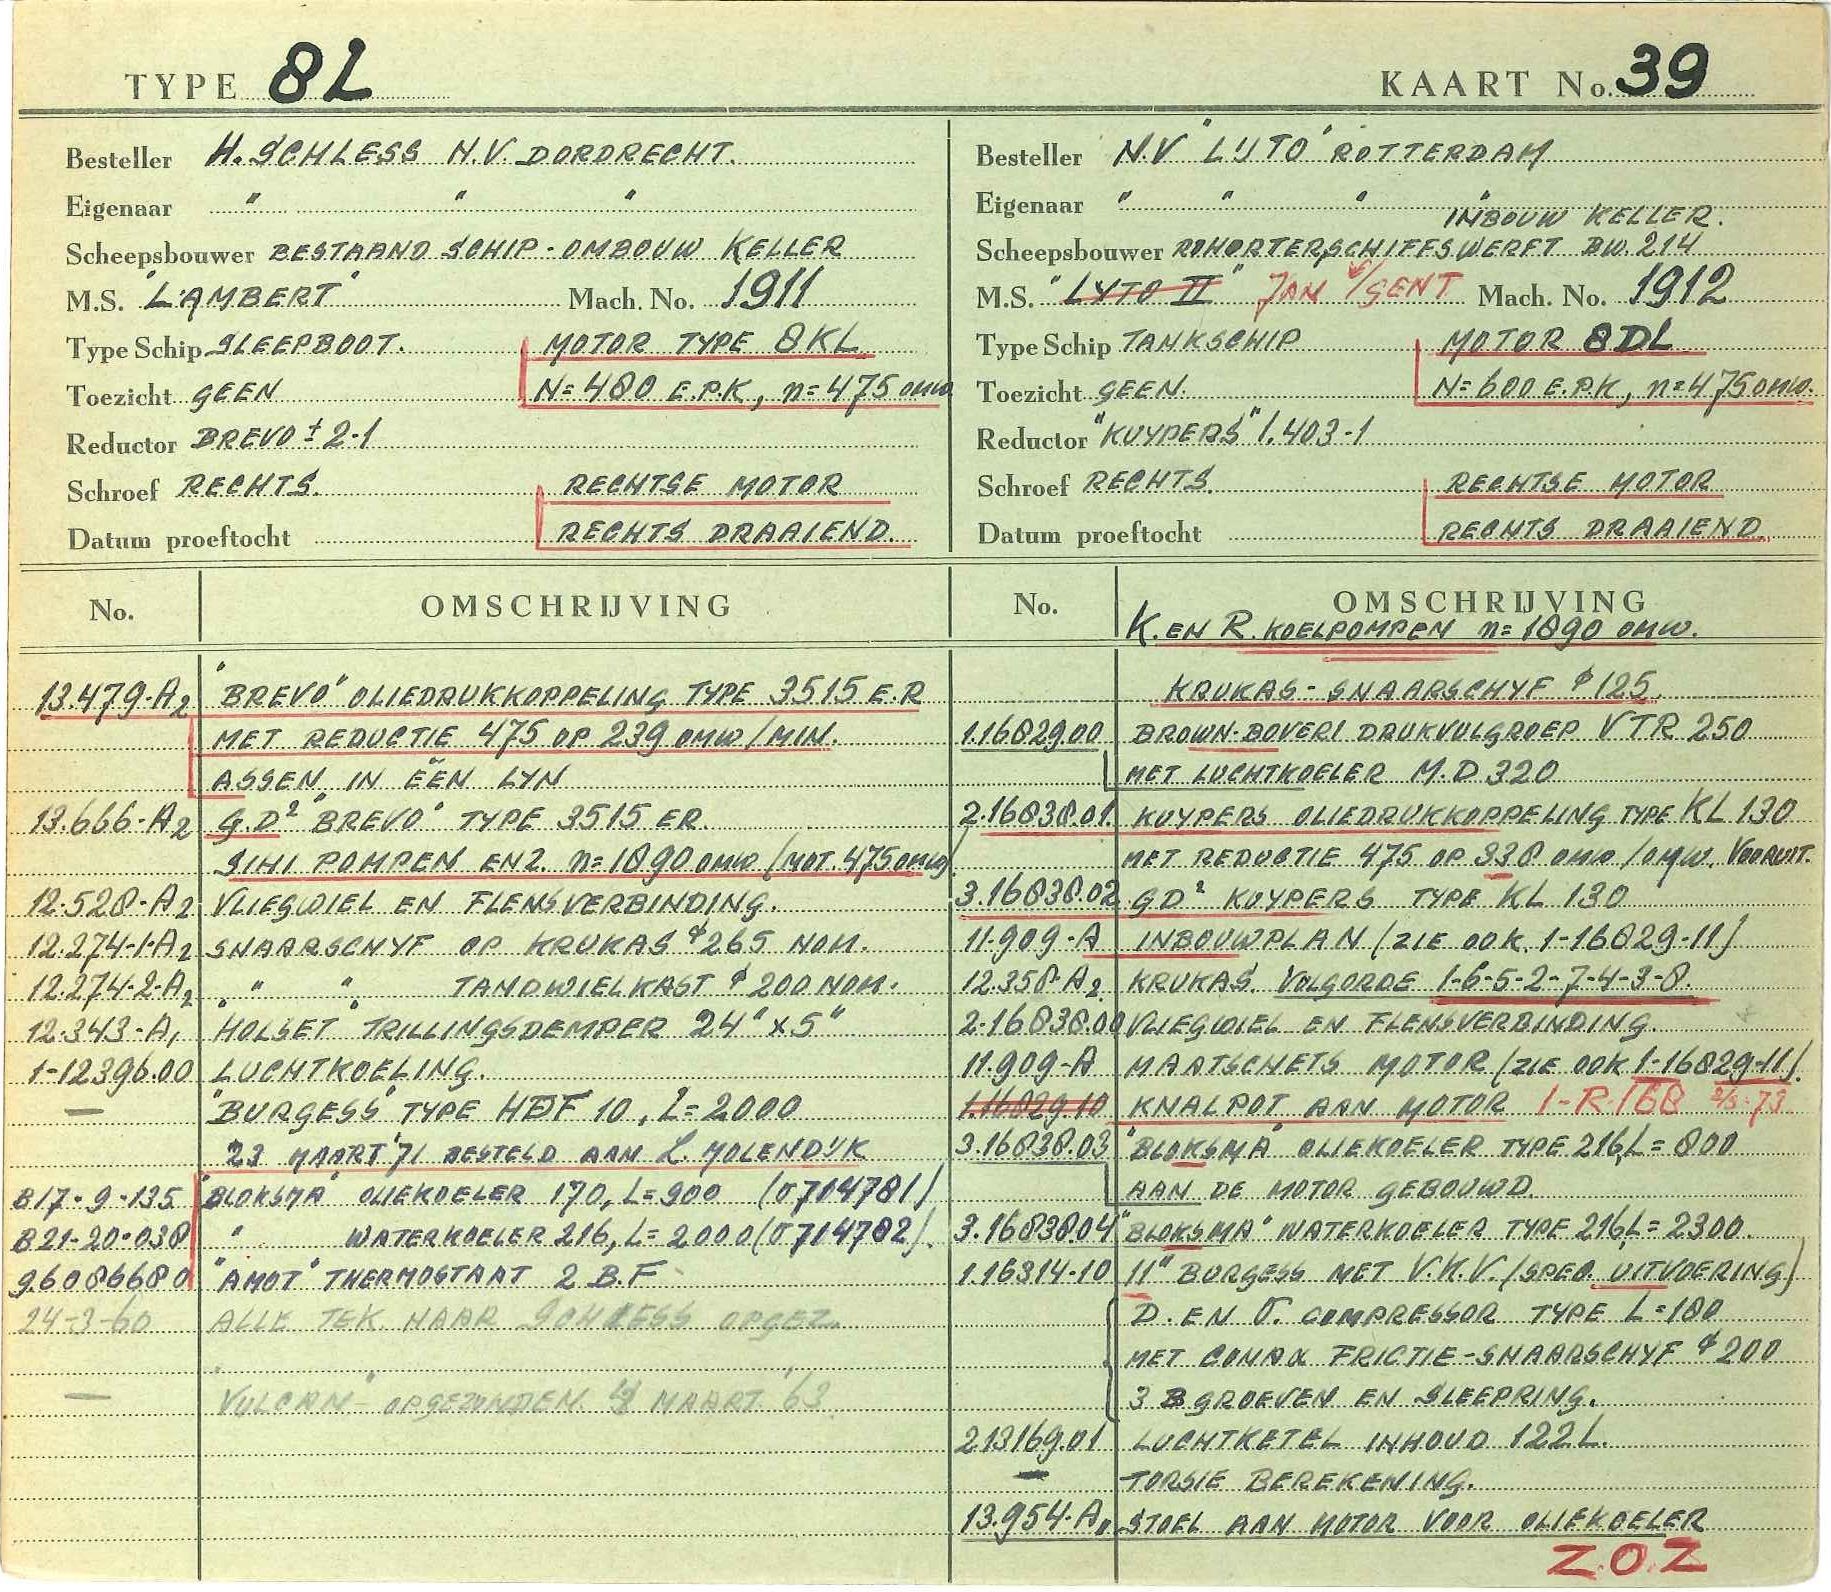 TYPE 8L
KAART No. 39
Besteller H. SCHLESS N.V. DORDRECHT.
Eigenaar " " "
Scheepsbouwer BESTAAND SCHIP - OMBOUW KELLER
M.S. "LAMBERT" Mach. No. 1911
Type Schip SLEEPBOOT. MOTOR TYPE 8KL
Toezicht GEEN N=480 E.P.K, n=475 OMW
Reductor BREVO ± 2-1
Schroef RECHTS. RECHTSE MOTOR
Datum proeftocht RECHTS DRAAIEND.
Besteller N.V "LIJTO" ROTTERDAM
Eigenaar " " " "
INBOUW KELLER.
Scheepsbouwer ROHORTERSCHIFFSWERFT BW. 214
M.S. "LYTO II" JAN V/GENT Mach. No. 1912
Type Schip TANKSCHIP MOTOR 8DL
Toezicht GEEN. N=600 E.P.K, n=475 OMW.
Reductor "KUYPERS" 1.403-1
Schroef RECHTS. RECHTSE MOTOR
Datum proeftocht RECHTS DRAAIEND.
No. OMSCHRIJVING
13.479-A2 "BREVO" OLIEDRUKKOPPELING TYPE 3515 E.R
MET REDUCTIE 475 OP 239 OMW/MIN.
ASSEN IN ÉÉN LYN
13.666-A2 G.D² "BREVO" TYPE 3515 ER.
SIHI POMPEN EN2. n=1890 OMW/MOT. 475 OMW)
12.528-A2 VLIEGWIEL EN FLENSVERBINDING.
12.274-1-A2 SNAARSCHYF OP KRUKAS ø265 NOM.
12.274-2-A2 " " " TANDWIELKAST ø200 NOM.
12.343-A1 "HOLSET" TRILLINGSDEMPER 24" x 5"
1-12396.00 LUCHTKOELING.
— "BURGESS" TYPE HDF 10, L=2000
23 MAART '71 BESTELD AAN L. MOLENDIJK
817-9-135 "BLOKSMA" OLIEKOELER 170, L=900 (0704781)
821-20-038 " WATERKOELER 216, L=2000 (0704782).
9.6086680 "AMOT" THERMOSTAAT 2 B.F
24-3-60 ALLE TEK. NAAR SCHLESS OPGEZ.
— VULCAN OPGEZONDEN MAART '63
No. OMSCHRIJVING
K. EN R. KOELPOMPEN n=1890 OMW.
KRUKAS-SNAARSCHYF ø125
1.16829.00 BROWN-BOVERI DRUKVULGROEP VTR 250
MET LUCHTKOELER M.D 320
2.16838.01. KUYPERS OLIEDRUKKOPPELING TYPE KL 130
MET REDUCTIE 475 OP 338 OMW/OMW. VOORUIT.
3.16838.02 GD² KUYPERS TYPE KL 130
11.909-A INBOUWPLAN (ZIE OOK 1-16829-11)
12.358-A2 KRUKAS. VOLGORDE 1-6-5-2-7-4-3-8.
2-16838.00 VLIEGWIEL EN FLENSVERBINDING.
11.909-A MAATSCHETS MOTOR (ZIE OOK 1-16829-11).
1.16829.10 KNALPOT AAN MOTOR 1-R.168
3.16838.03 "BLOKSMA" OLIEKOELER TYPE 216, L=800
AAN DE MOTOR GEBOUWD.
3.16838.04 "BLOKSMA" WATERKOELER TYPE 216, L=2300.
1.16314-10 11" BURGESS MET V.K.V. (SPEC. UITVOERING)
D. EN O. COMPRESSOR TYPE L=180
MET CONAX FRICTIE-SNAARSCHYF ø200
3 B GROEVEN EN SLEEPRING.
2.13169.01 LUCHTKETEL INHOUD 122 L.
— TORSIE BEREKENING.
13.954-A STOEL AAN MOTOR VOOR OLIEKOELER
Z.O.Z